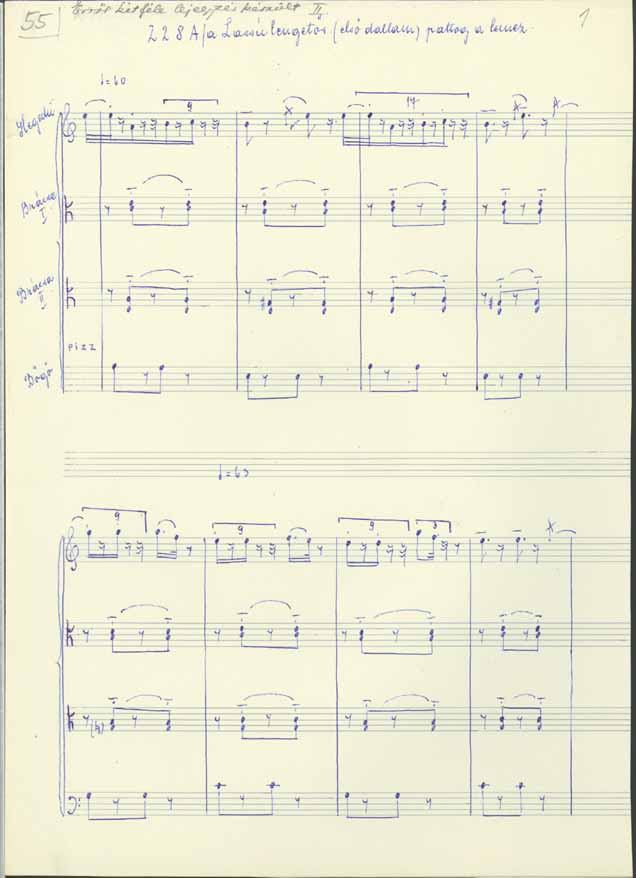 55
Erről kétféle lejegyzés készült II.
Z 2 8 A/a Lassú lengetős (első dallam) pattog a lemez.
1
=60
9
17
Hegedű
Brácsa I
Brácsa II
pizz
Bőgő
=63
9
9
9
3